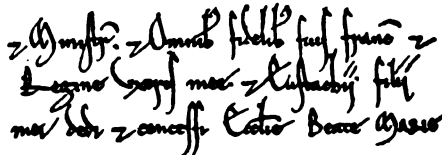 ⁊ Ministr̃. ⁊ Omnib fidelib suis franc̃ ⁊
Regine Uxoris mee ⁊ Eustachij filij
mei dedi ⁊ concessi Ecclie Beate Marie